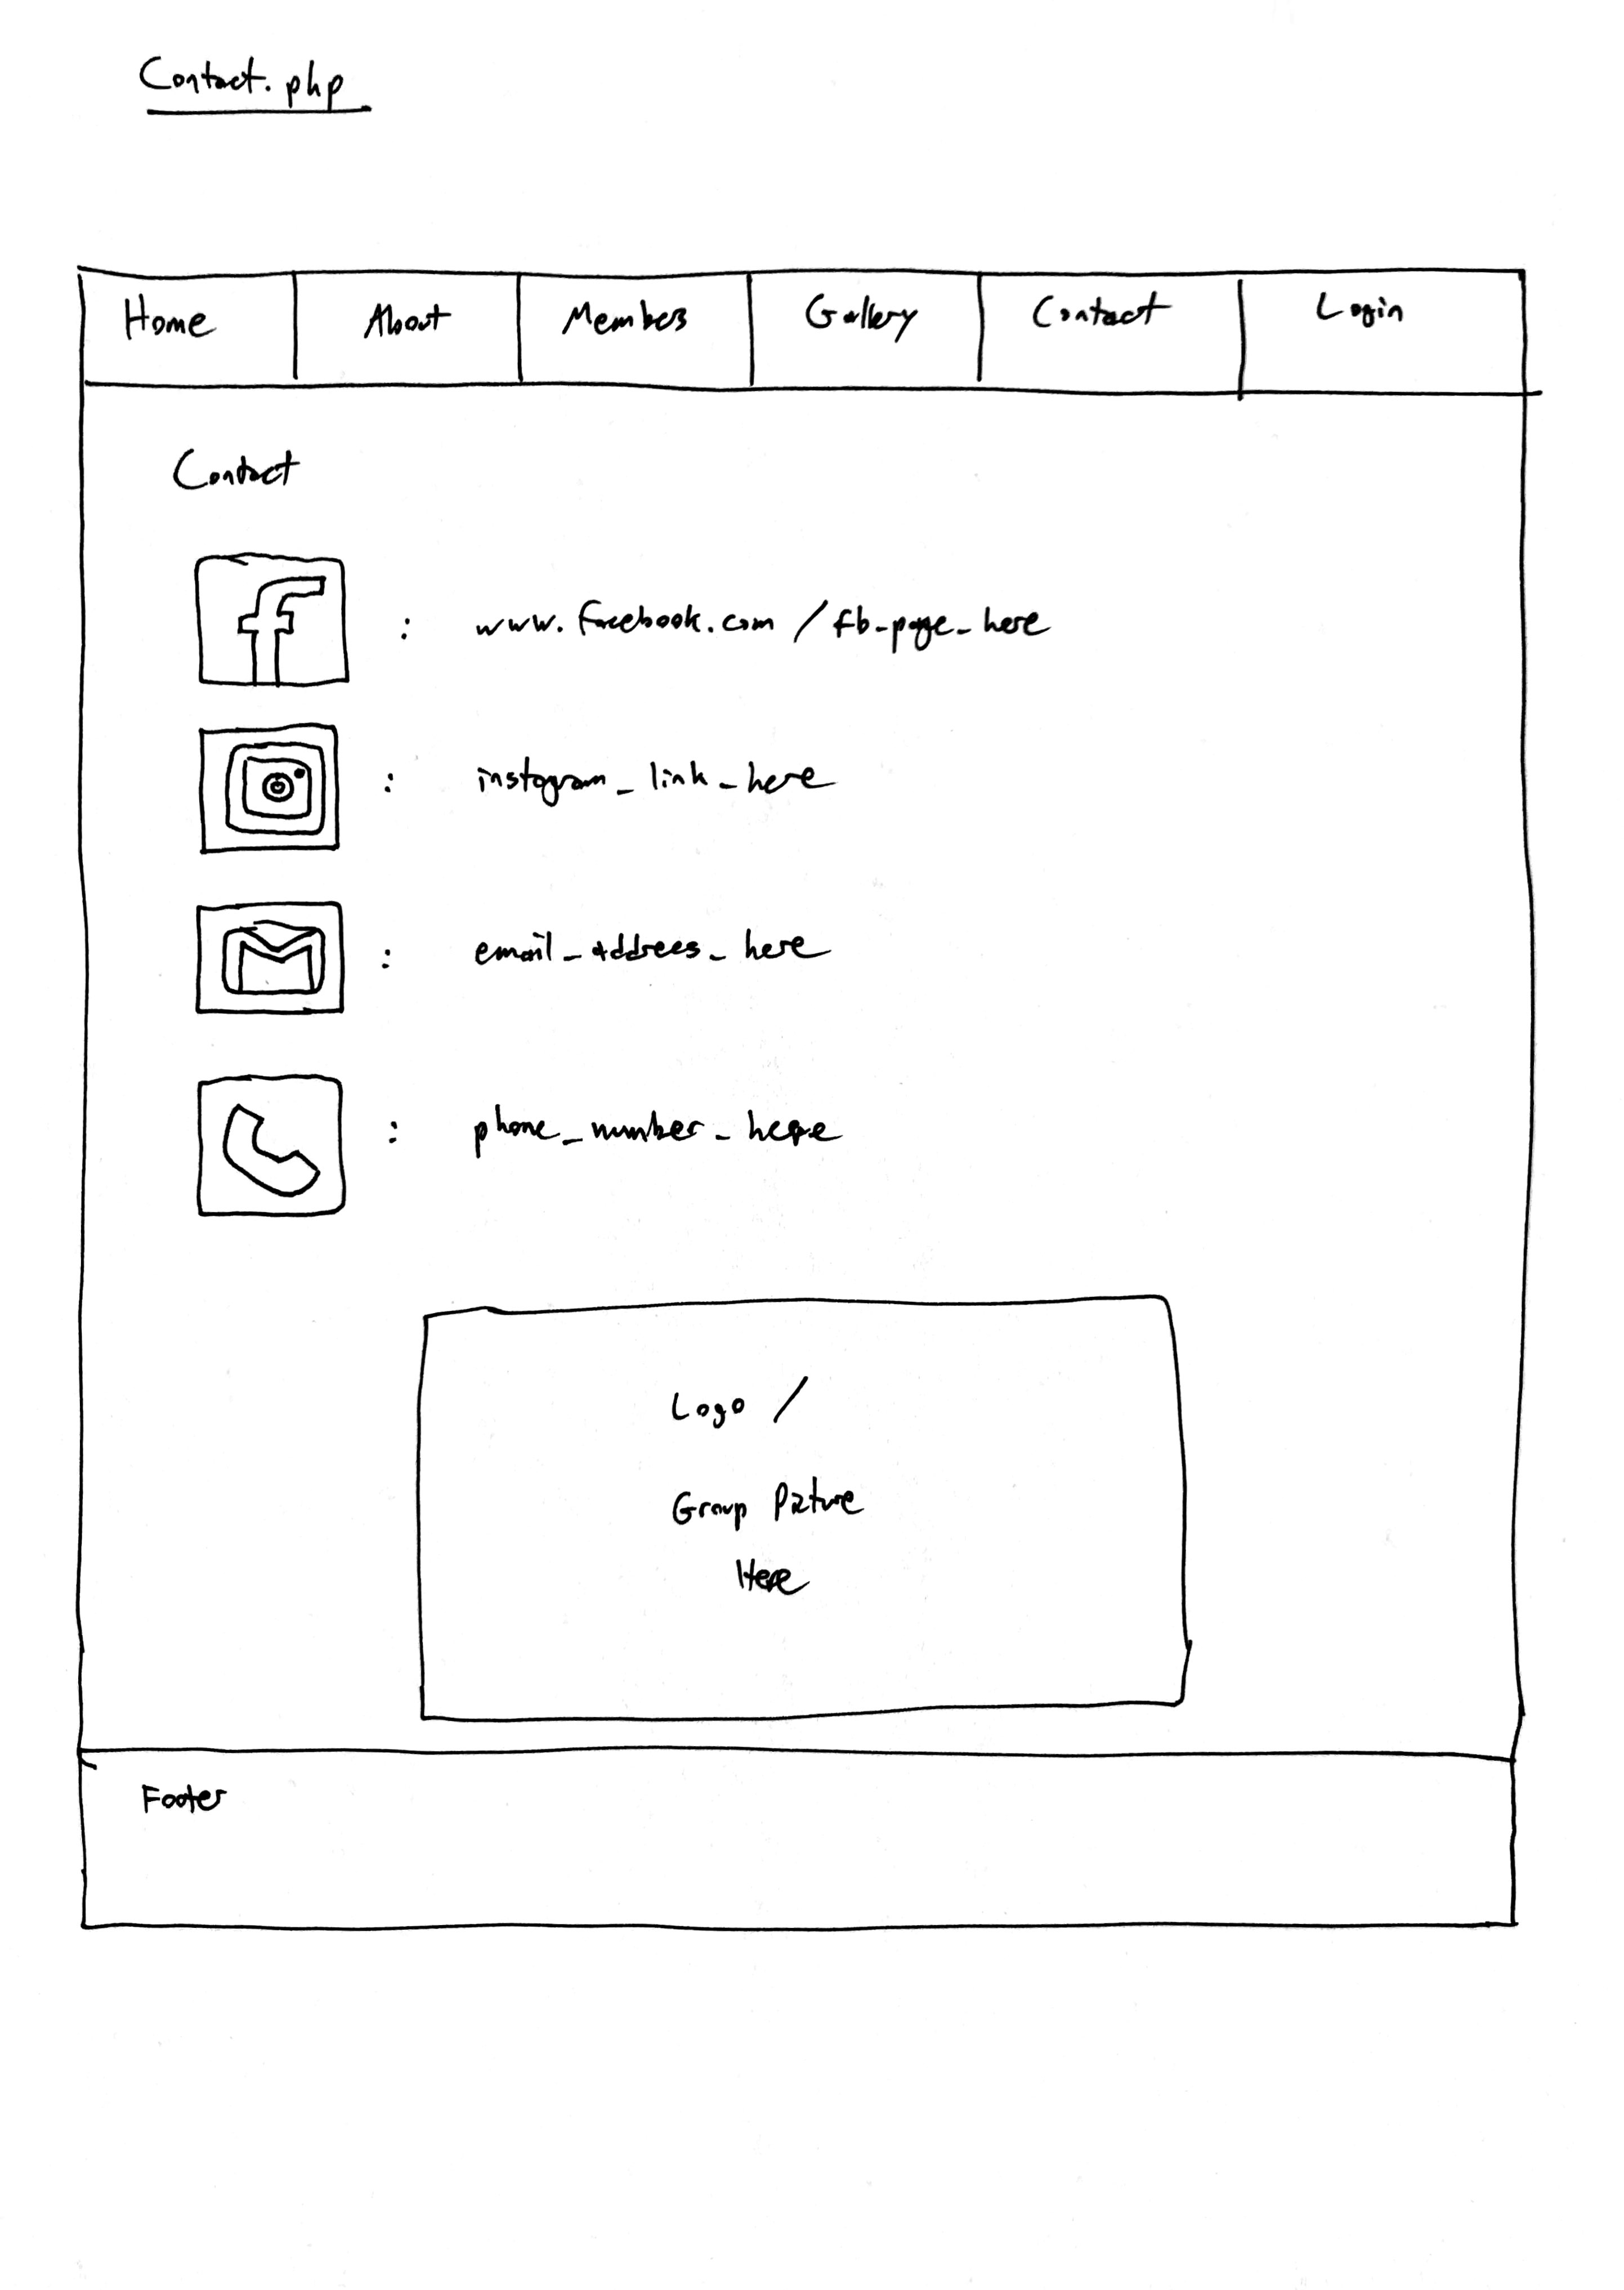 Contact.php
Home About Members Gallery Contact Login
Contact
: www.facebook.com/fb_page_here
: instagram_link_here
: email_addrees_here
: phone_number_here
Logo /
Group Picture
Here
Footer